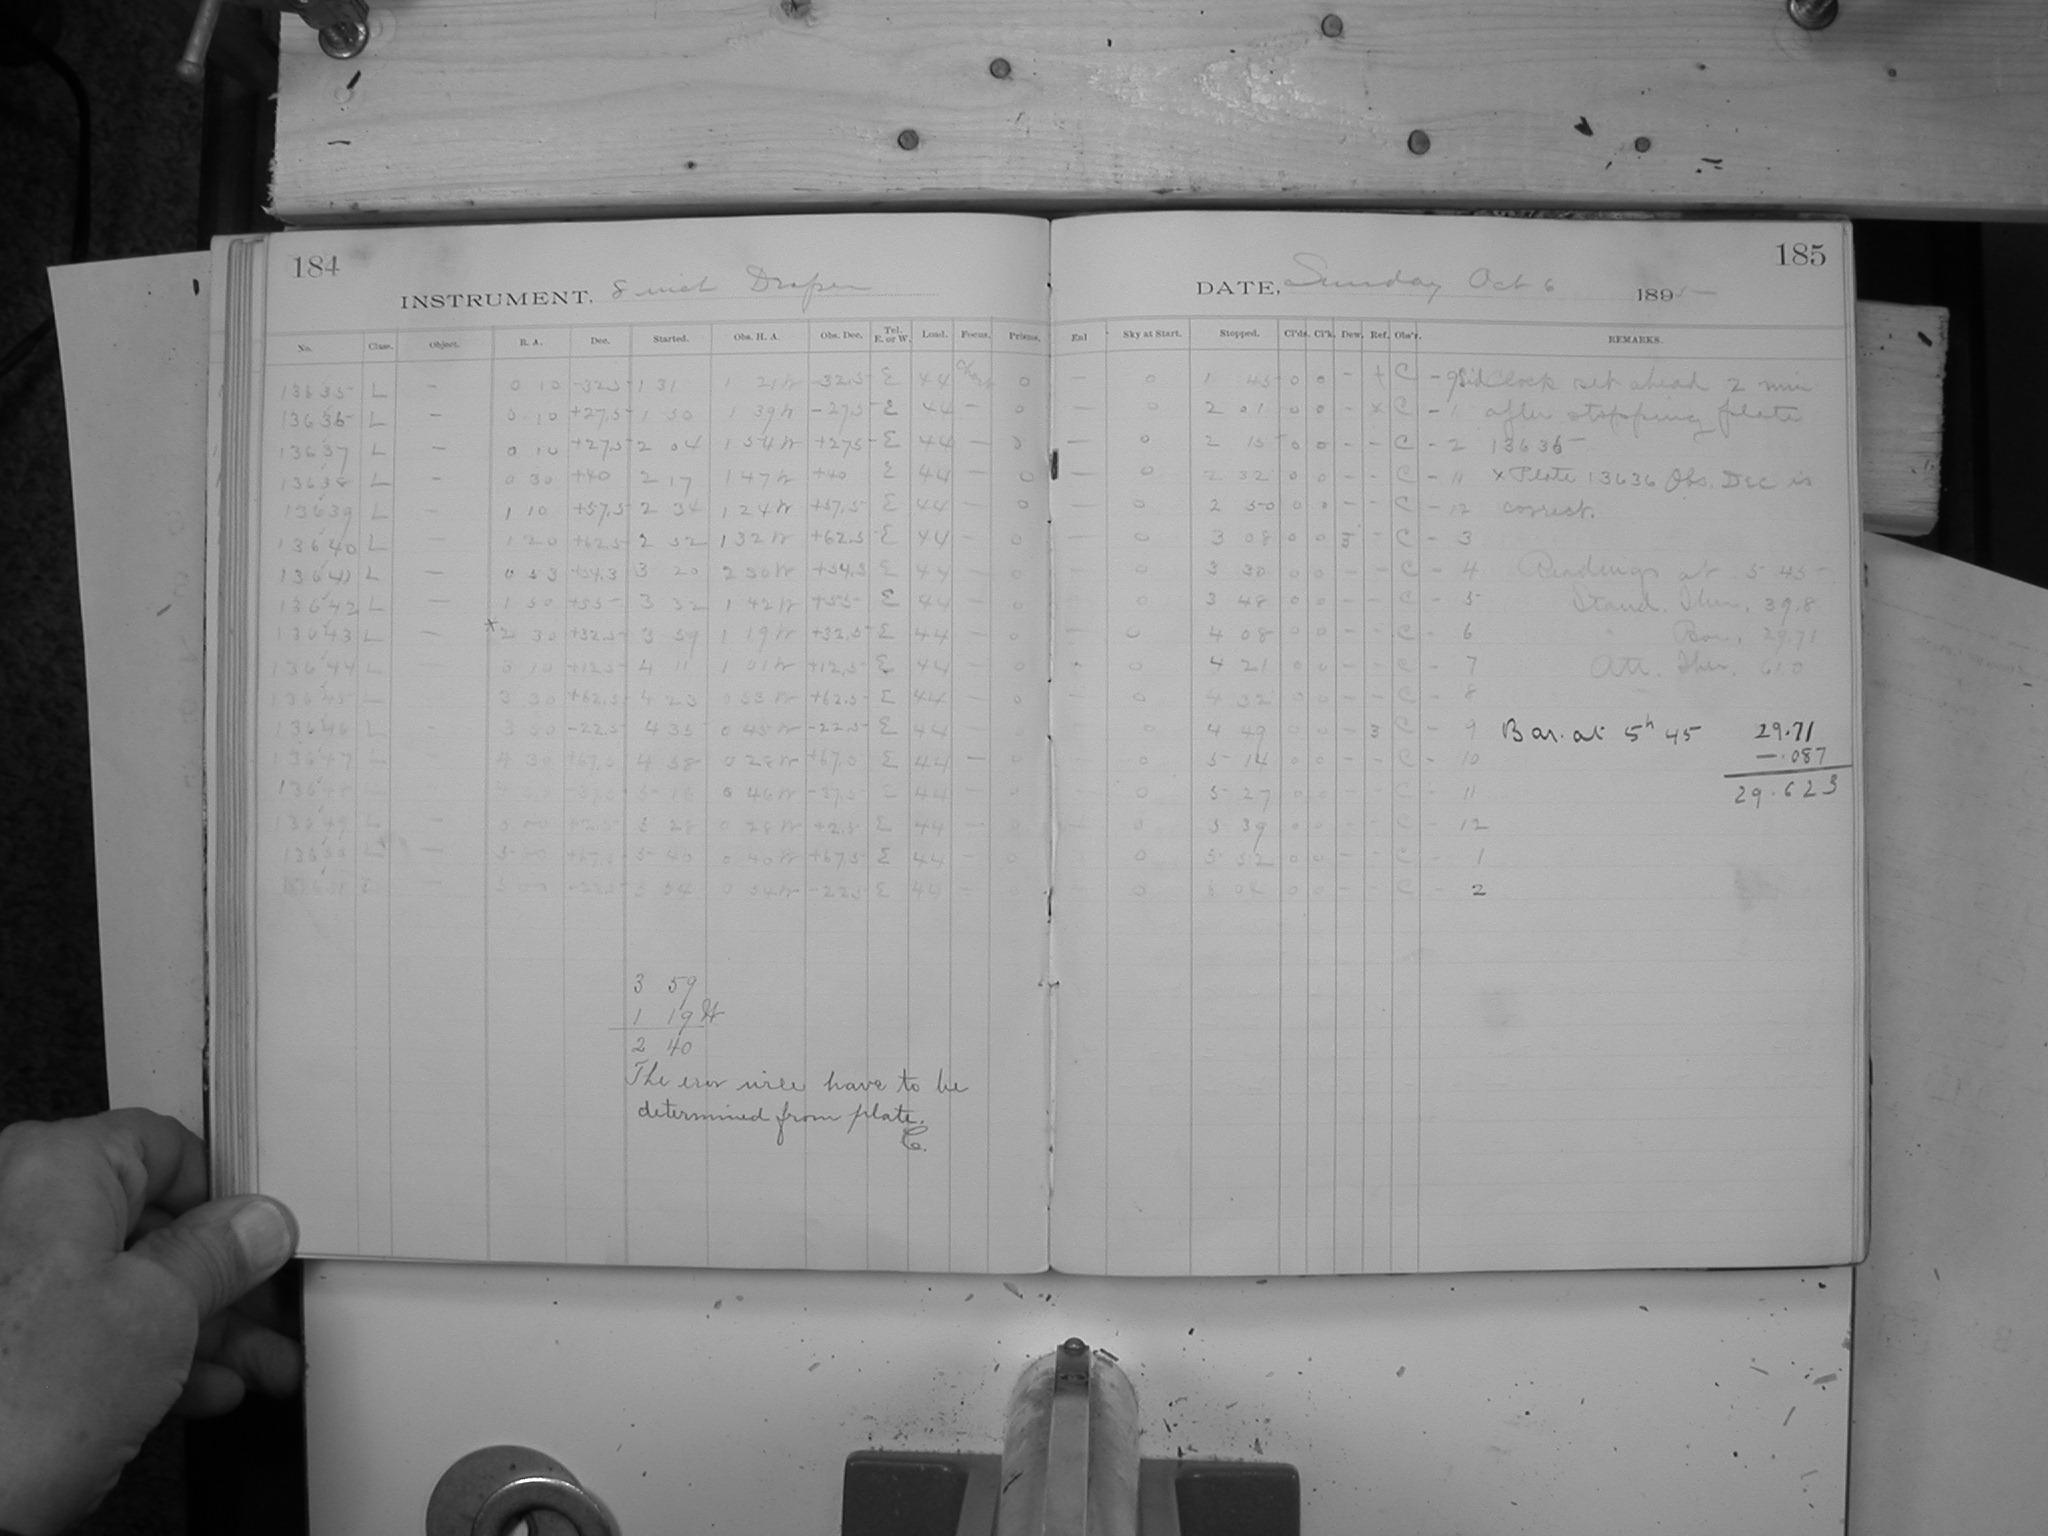 184
INSTRUMENT, 8 inch Draper
No. Class. Object. R. A. Dec. Started. Obs. H. A. Obs. Dec. Tel. E. or W. Load. Focus. Prisms.
13635 L – 0 10 -32.5 1 31 1 21 W -32.5 E 44 0
13636 L – 0 10 +27.5 1 50 1 39 W -27.5 E 44 – 0
13637 L – 0 10 +27.5 2 04 1 54 W +27.5 E 44 – 0
13638 L – 0 30 +40 2 17 1 47 W +40 E 44 – 0
13639 L – 1 10 +57.5 2 34 1 24 W +57.5 E 44 – 0
13640 L – 1 20 +62.5 2 52 1 32 W +62.5 E 44 – 0
13641 L – 0 53 +54.3 3 20 2 30 W +54.3 E 44 – 0
13642 L – 1 50 +55 3 32 1 42 W +55 E 44 – 0
13643 L – *2 30 +32.5 3 59 1 19 W +32.5 E 44 – 0
13644 L – 3 10 +12.5 4 11 1 01 W +12.5 E 44 – 0
13645 L – 3 30 +62.5 4 23 0 53 W +62.5 E 44 – 0
13646 L – 3 50 -22.5 4 35 0 45 W -22.5 E 44 – 0
13647 L – 4 30 +67.0 4 58 0 28 W +67.0 E 44 – 0
13648 L – -37.5 5 16 0 46 W -37.5 E 44 – 0
13649 L – +2.5 5 28 0 28 W +2.5 E 44 – 0
13650 L – 5 00 +67.5 5 40 0 40 W +67.5 E 44 – 0
13651 L – 5 00 -22.5 5 54 0 54 W -22.5 E 44 – 0
3 59
1 19 W
2 40
The error will have to be
determined from plate.
C.
185
DATE, Sunday Oct 6 1895
Enl Sky at Start. Stopped. Cl'ds. Cl'k. Dew. Ref. Obs'r. REMARKS.
– 0 1 45 0 0 – + C – 9 Sid Clock set ahead 2 min
– 0 2 01 0 0 – x C – 1 after stopping plate
– 0 2 15 0 0 – – C – 2 13635
– 0 2 32 0 0 – – C – 11 x Plate 13636 Obs. Dec is
– 0 2 50 0 0 – – C – 12 correct.
– 0 3 08 0 0 3 – C – 3
– 0 3 30 0 0 – – C – 4 Readings at 5 45
0 3 48 0 0 – – C – 5 Stand. Ther. 39.8
– 0 4 08 0 0 – – C – 6 Bar. 29.71
0 4 21 0 0 – – C – 7 Att. Ther. 61.0
– 0 4 32 0 0 – – C – 8
0 4 49 0 0 – 3 C – 9 Bar. at 5h 45 29.71
– 0 5 14 0 0 – – C – 10 –.087
– 0 5 27 0 0 – – C – 11 29.623
– 0 5 39 0 0 – – C – 12
0 5 52 0 0 – – C – 1
0 6 0 0 – – C – 2